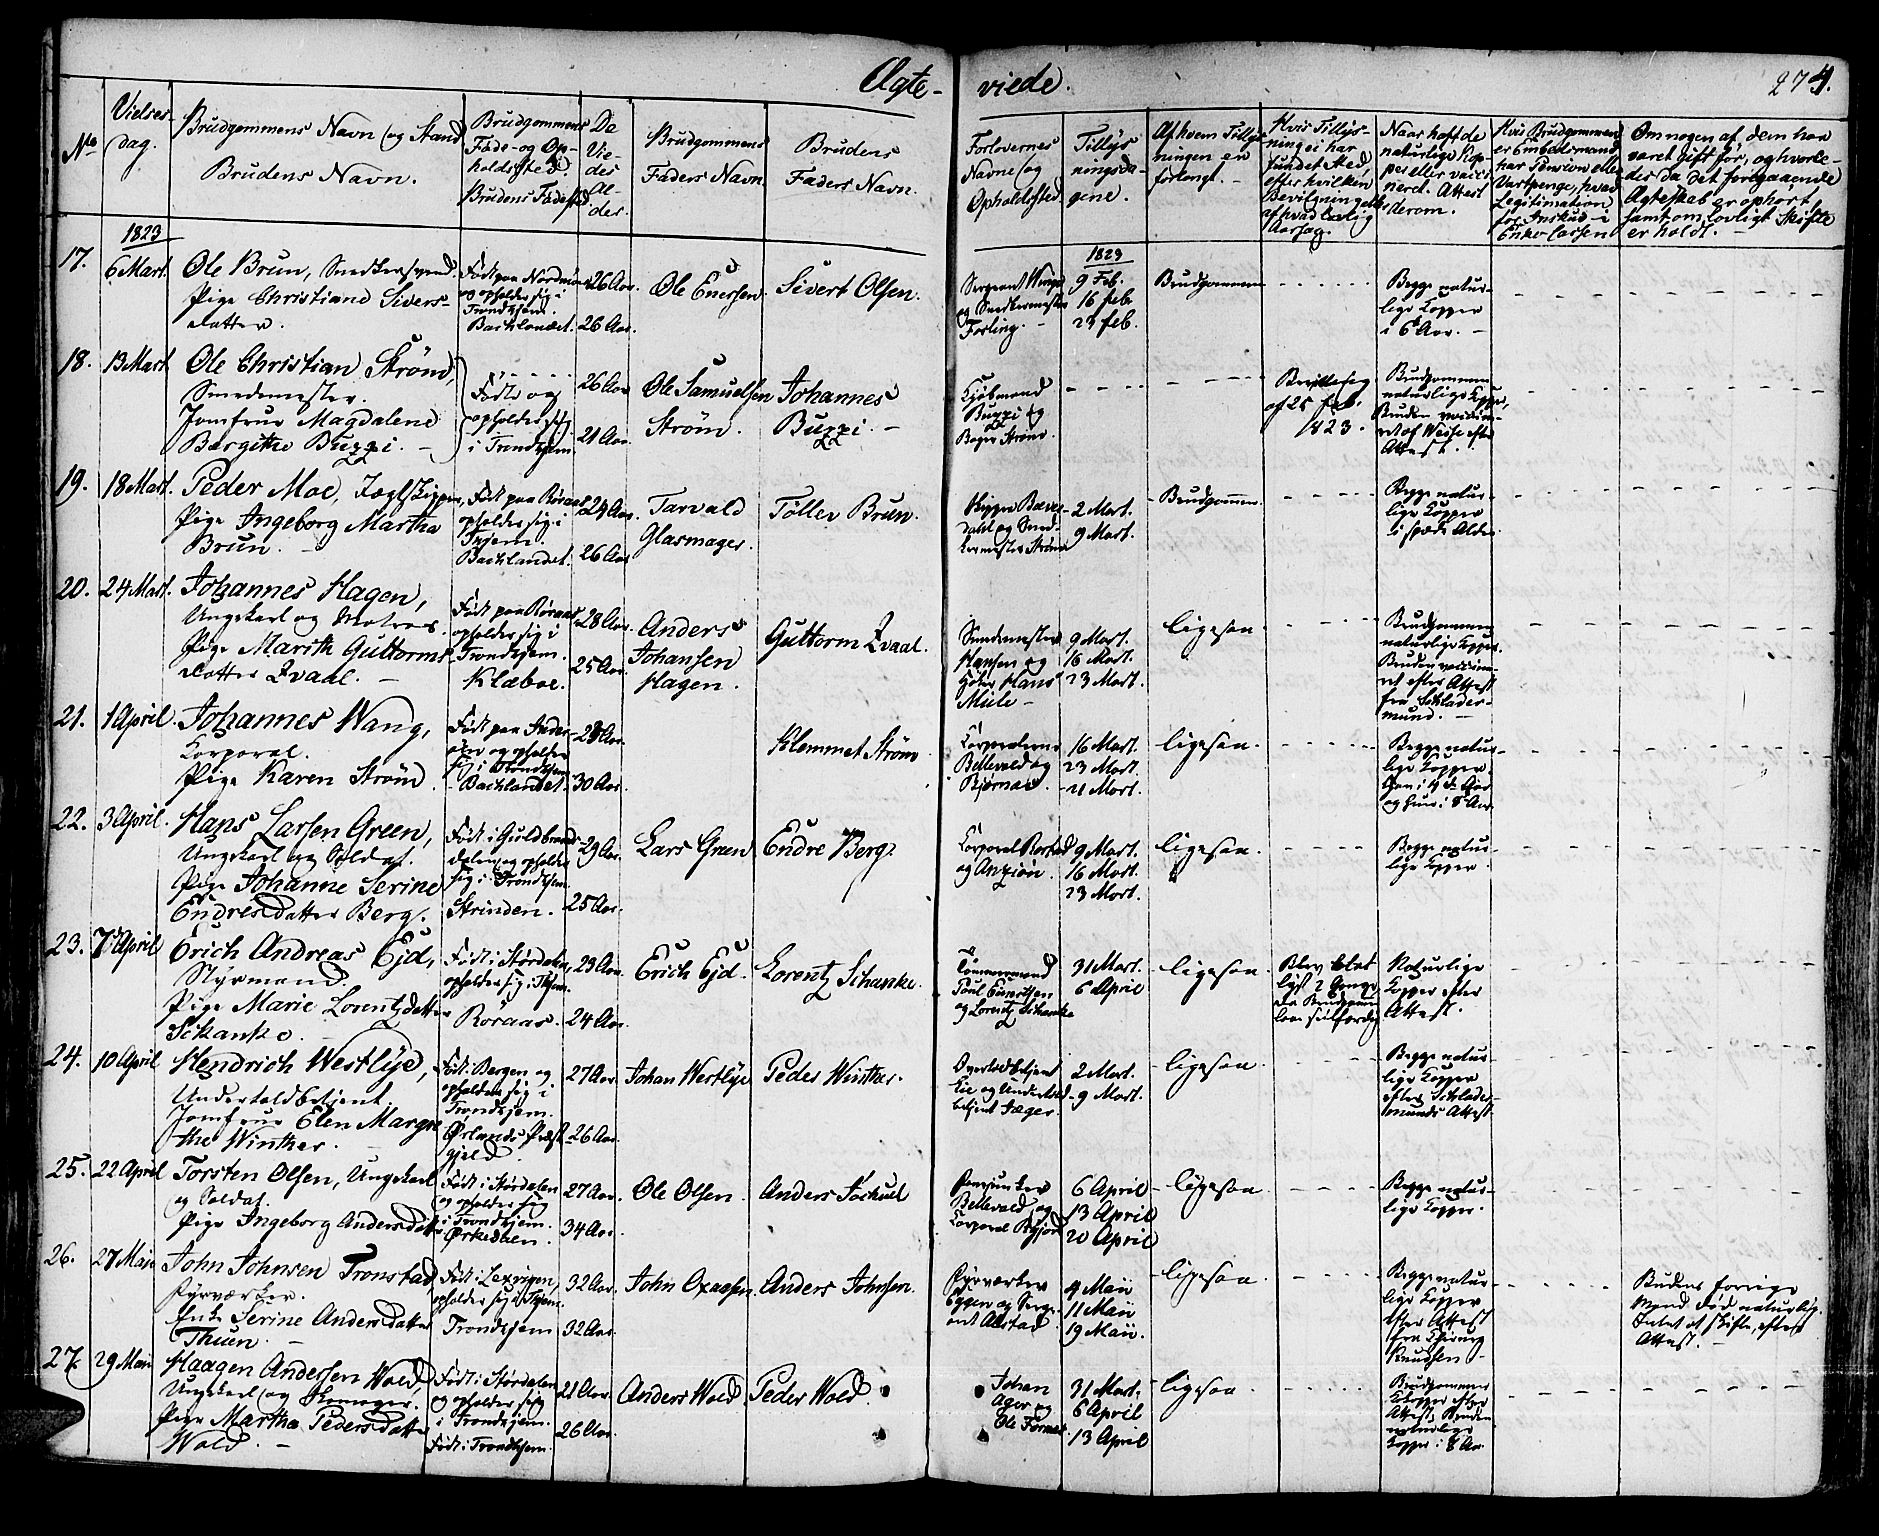 Ægte-
viede.
274.
No
Vielses-
dag.
Brudgommens Navn og Stand
Brudens Navn.
Brudgommens
Føde- og Op-
holdssted.
Brudens Fødested
De
Vie-
des
Al-
der.
Brudgommens
Faders Navn.
Brudens
Faders Navn.
Forlovernes
Navne og
Opholdsted
Tillys-
ningsda-
gene.
Af hvem Tillys-
ningen er
forlangt.
Hvis Tillys-
ning ei har
fundet Sted,
efter hvilken
Bevilgning eller
af hvad lovlig
Aarsag.
Naar haft de
naturlige Kop-
per eller vacci-
nered. Attest
derom.
Hvis Brudgommen
er Embedsmand
har Pension eller
Vartpenge, hvad
Legitimation
for Inskud i
Enkecassen
Om nogen af dem har
været gift før, og hvorle-
des da det foregaaende
Ægteskab er ophørt
samt om lovligt Skifte
er holdt.
1823
1823
17.
6 Mart.
Ole Brun, Snedkersvend.
Pige Christiane Sivers-
datter.
Født paa Nordmør
og opholder sig i
Trondhjem.
Bachlandet.
26 Aar.
26 Aar.
Ole Enersen.
Sivert Olsen.
Sergeant Wing
og Snedkermester
Forling.
9 Feb.
16 feb.
23 feb.
Brudgommen
Begge natur-
lige Kopper
i 6 Aar.
18.
13 Mart
Ole Christian Strøm,
Smedemester.
Jomfrue Magdalene
Bergithe Buzzi.
Fødte og
opholder sig
i Trondhjem
26 Aar
21 Aar.
Ole Samuelsen
Strøm.
Johannes
Buzzi.
Kjøbmand
Buzzi og
Bager Strøm.
Bevillning
af 25 feb.
1823.
Brudgommen
naturlige Kopper,
Bruden vaccine-
ret af Weise efter
Attest.
19.
18 Mart.
Peder Moe, Jægtskipper,
Pige Ingeborg Martha
Brun.
Født paa Røraas
opholder sig i
Thjem.
Bachlandet.
24 Aar.
26 Aar
Tarvald
Glasmager.
Tøller Brun.
2 Mart.
9 Mart.
Brudgommen.
Begge natur-
lige Kopper
i spæde Alder
20.
24 Mart.
Johannes Hagen,
Ungekarl og Matros.
Pige Marith Guttorms-
datter Zvaal.
Født paa Røraas
opholder sig i
Trondhjem.
Klæboe.
28 Aar.
25 Aar.
Anders
Johansen
Hagen.
Guttorm Zvaal.
Smedemester
Hansen og
Hans
Mule
9 Mart.
16 Mart.
23 Mart.
ligesaa.
Brudgommen
naturlige Kopper.
Bruden vaccine-
ret efter Attest
fra Schlader-
mund.
21.
1 April.
Johannes Wang,
Corporal.
Pige Karen Strøm.
Født paa Inder-
øen og opholder
sig i Trondhjem
Bachlandet.
28 Aar.
30 Aar.
Klemmet Strøm
Corporalerne
Bellevald og
Bjørnaas
16 Mart.
23 Mart.
21 Mart.
ligesaa.
Begge natur-
lige Kopper.
og hun i 8 Aar.
22.
3 April.
Hans Larsen Green,
Ungekarl og Soldat.
Pige Johanne Serine
Endresdatter Berg.
Født i Guldbrands-
dalen og opholder
sig i Trondhjem.
Strinden.
29 Aar.
25 Aar.
Lars Green
Endre Berg.
Corporal
og
9 Mart.
16 Mart.
23 Mart.
ligesaa.
Begge natur-
lige Kopper.
23.
7 April
Erich Andreas Ejd,
Styrmand.
Pige Marie Lorentzdatter
Schanke.
Født i Størdalen,
opholder sig i Thjem.
Røraas.
23 Aar.
24 Aar.
Erich Ejd.
Lorentz Schanke.
Tømmermand
Poul
og Lorentz Schanke
31 Mart.
6 April
ligesaa.
Blev blot
lyst 2 Gange,
da Brudgom-
men seilfærdig
Naturlige
Kopper efter
Attest.
24.
10 April
Hendrich Westlye,
Undertoldbetjent.
Jomfrue Elen Margre-
the Winther.
Født i Bergen og
opholder sig i
Trondhjem.
Ørlands Præst-
gjeld
27 Aar.
26 Aar.
Johan Westlye
Peder Winther.
Overtoldbetjent
Lie og Undertold-
betjent Jæger.
2 Mart.
9 Mart.
ligesaa.
Begge natur-
lige Kopper
efter Schlader-
munds Attest.
25.
22 April
Torsten Olsen, Ungekarl
og Soldat.
Pige Ingeborg Andersdatter
Født i Størdalen
og opholder sig
i Trondhjem.
Ørkedalen.
27 Aar.
34 Aar.
Ole Olsen.
Anders
Bellevald og
Corporal
6 April
13 April
20 April
ligesaa.
Begge natur-
lige Kopper.
26.
27 Maii
John Johnsen Tronstad,
Fyrværker.
Enke Serine Andersdatter
Thuen.
Født i Lexvigen,
opholder sig i Thjem.
Trondhjem
32 Aar.
32 Aar.
John
Anders Johnsen.
Fyrværker
og Serge-
ant Aarstad.
4 Maii
11 Maii
19 Maii
ligesaa.
Begge natur-
lige Kopper
efter Attest
fra Chirurg
Knudsen
Brudens forrige
Mand død naturlig.
Intet at skifte, efter
Attest.
27.
29 Maii
Haagen Andersen Wold,
Ungekarl og
Pige Martha Pedersdatter
Wold.
Født i Størdalen
og opholder sig
i Trondhjem.
Født i Trondhjem.
21 Aar.
26 Aar.
Anders Wold
Peder Wold.
Johan
Ager og
Ole
31 Mart.
6 April
13 April
ligesaa.
Brudgommen
Kopper efter
Attest, Bruden
naturlige
Kopper i 8 Aar